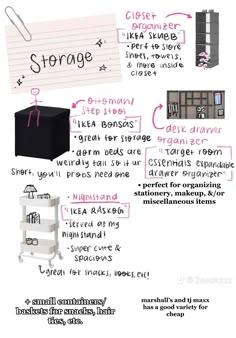 Storage
closet organizer
"IKEA SKUBB"
• perf to store
shoes, towels,
& more inside
closet
ottoman/
step stool
"IKEA BONSAS"
• great for storage
• dorm beds are
weirdly tall so if ur
short, you'll probs need one
desk drawer
organizer
"Target room
essentials expandable
drawer organizer"
• perfect for organizing
stationery, makeup, &/or
miscellaneous items
Nightstand
"IKEA RÅSKOG"
• served as my
nightstand!
• super cute &
spacious
great for snacks, books, etc!
+ small containers/
baskets for snacks, hair
ties, etc.
marshall's and tj maxx
has a good variety for
cheap